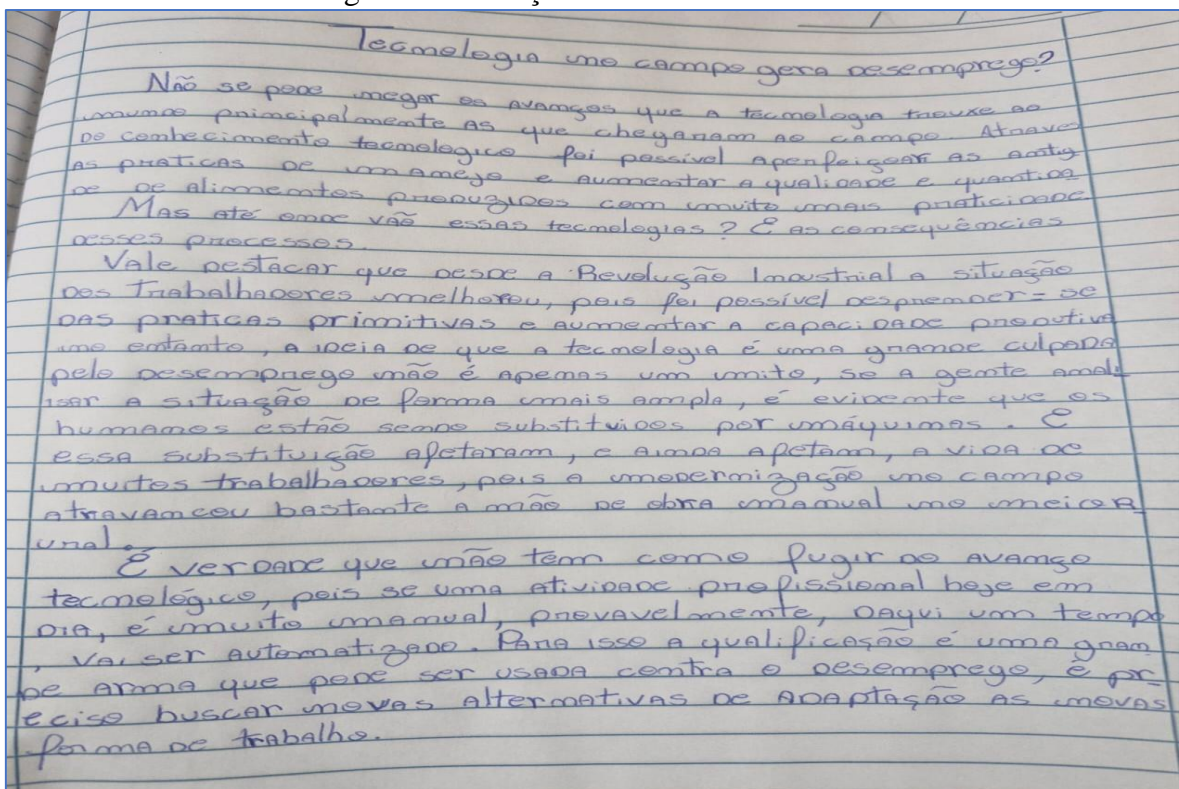 Tecnologia no campo gera desemprego?
Não se pode negar os avanços que a tecnologia trouxe ao
mundo principalmente as que chegaram ao campo. Atraves
do conhecimento tecnologico foi possivel aperfeiçoar as antig
as praticas de manejo e aumentar a qualidade e quantida
de de alimentos produzidos com muito mais praticidade.
Mas até onde vão essas tecnologias? E as consequências
desses processos.
Vale destacar que desde a Revolução Industrial a situação
dos trabalhadores melhorou, pois foi possível desprender-se
das praticas primitivas e aumentar a capacidade produtiva
no entanto, a ideia de que a tecnologia é uma grande culpada
pelo desemprego não é apenas um mito, se a gente anal
isar a situação de forma mais ampla, é evidente que os
humanos estão sendo substituidos por máquinas. E
essa substituição afetaram, e ainda afetam, a vida de
muitos trabalhadores, pois a modernização no campo
atravancou bastante a mão de obra manual no meio R
ural.
É verdade que não tem como fugir do avanço
tecnológico, pois se uma atividade profissional hoje em
dia, é muito manual, provavelmente, daqui um tempo
, vai ser automatizado. Para isso a qualificação é uma gran
de arma que pode ser usada contra o desemprego, é pr-
eciso buscar novas alternativas de adaptação as novas
forma de trabalho.